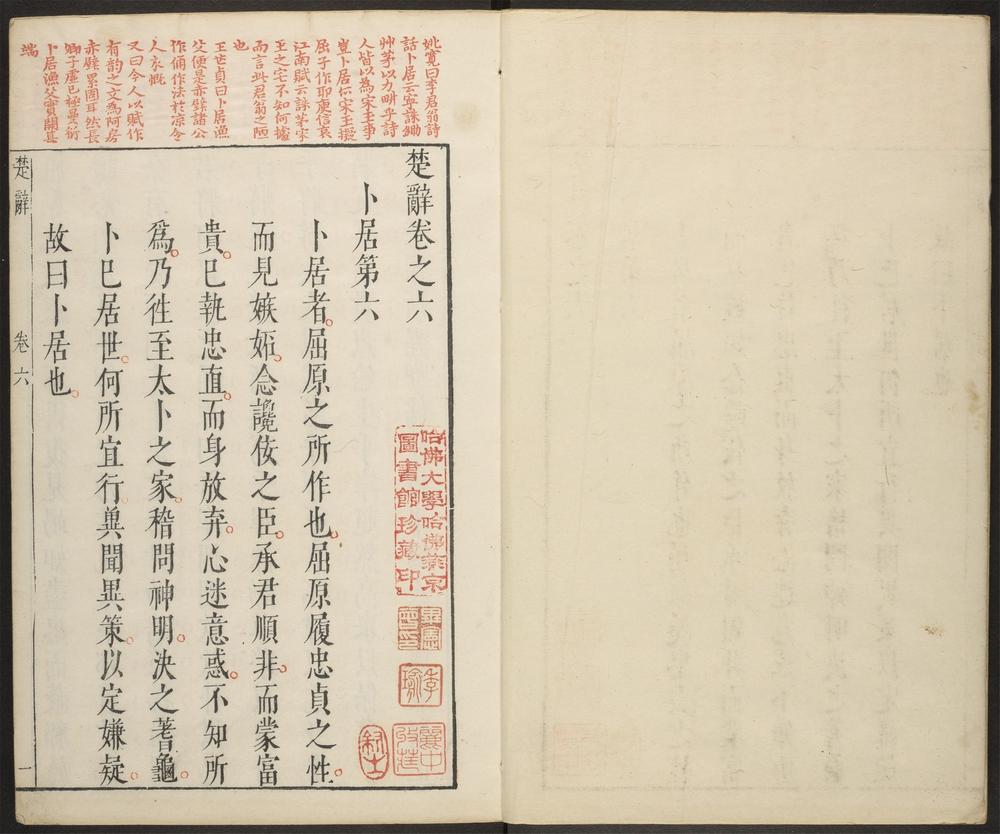 姚寬曰李君翁詩
話卜居云寧誅鋤
艸茅以力畊乎詩
人皆以為宋玉事
豈卜居亦宋玉擬
屈子作耶庾信哀
江南賦云誅茅宋
玉之宅不知何據
而言此君翁之陋
也
王世貞曰卜居漁
父便是赤壁諸公
作俑作法於凉令
人永慨
又曰今人以賦作
有韵之文為阿房
赤壁累固耳然長
卿子虛已極曼衍
卜居漁父實開其
端
楚辭卷之六
卜居第六
卜居者屈原之所作也屈原履忠貞之性
而見嫉妬念讒佞之臣承君順非而蒙富
貴已執忠直而身放弃心迷意惑不知所
爲乃徃至太卜之家稽問神明決之蓍龜
卜已居世何所宜行兾聞異策以定嫌疑
故曰卜居也
楚辭
卷六
一
哈佛大學哈佛燕京
圖書館珍藏印
季
瑜